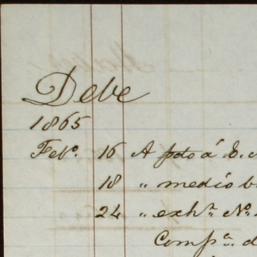 Debe
1865
Feb.o 16 A pdo á E.
18 " medio b
24 " exh.n No.
Comp.a d